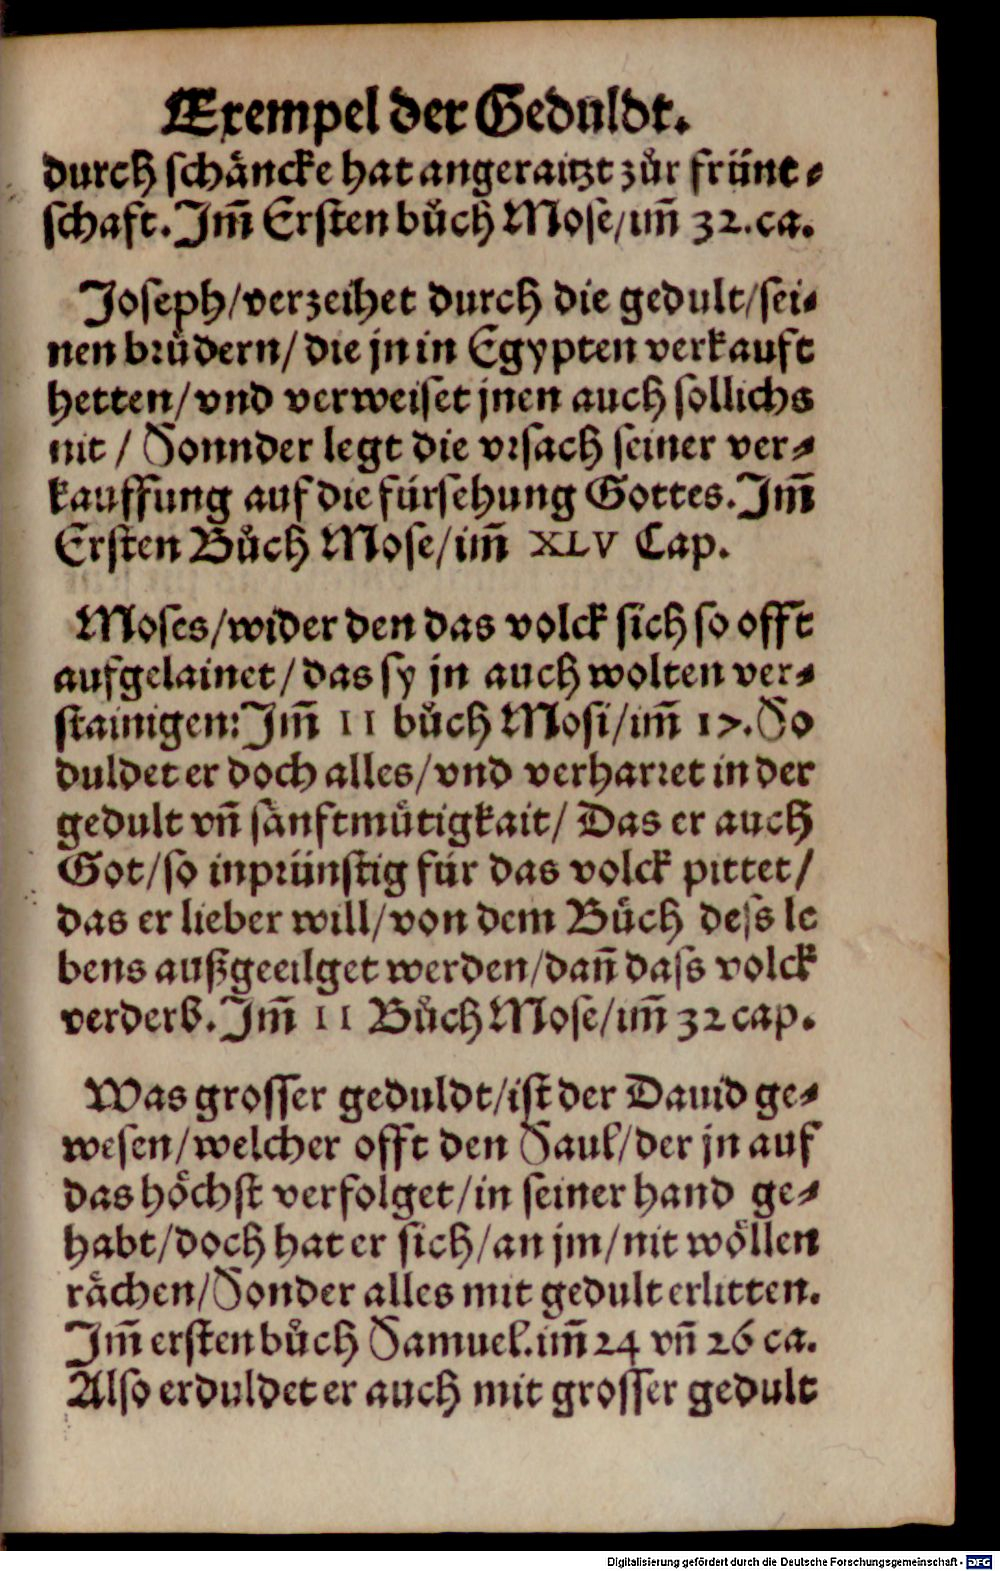 Exempel der Geduldt.
durch schäncke hat angeraitzt zůr frünt⸗
schaft. Im̃ Ersten bůch Mose/im̃ 32.ca.
Joseph/verzeihet durch die gedult/sei⸗
nen brüdern/ die jn in Egypten verkauft
hetten/vnd verweiset jnen auch sollichs
nit / Sonnder legt die vrsach seiner ver⸗
kauffung auf die fürsehung Gottes. Im̃
Ersten Bůch Mose/im̃ XLV Cap.
Moses/wider den das volck sich so offt
aufgelainet/das sy jn auch wolten ver⸗
stainigen: Im̃ 11 bůch Mosi/im̃ 17. So
duldet er doch alles/vnd verharret in der
gedult vñ sänftmütigkait/ Das er auch
Got/so inprünstig für das volck pittet/
das er lieber will/von dem Bůch dess le
bens außgeeilget werden/dañ dass volck
verderb. Im̃ 11 Bůch Mose/im̃ 32 cap.
Was grosser geduldt/ist der Dauid ge⸗
wesen/welcher offt den Saul/der jn auf
das höchst verfolget/in seiner hand ge⸗
habt/doch hat er sich/an jm/nit wöllen
rächen/Sonder alles mit gedult erlitten.
Im̃ ersten bůch Samuel.im̃ 24 vñ 26 ca.
Also erduldet er auch mit grosser gedult
Digitalisierung gefördert durch die Deutsche Forschungsgemeinschaft - DFG